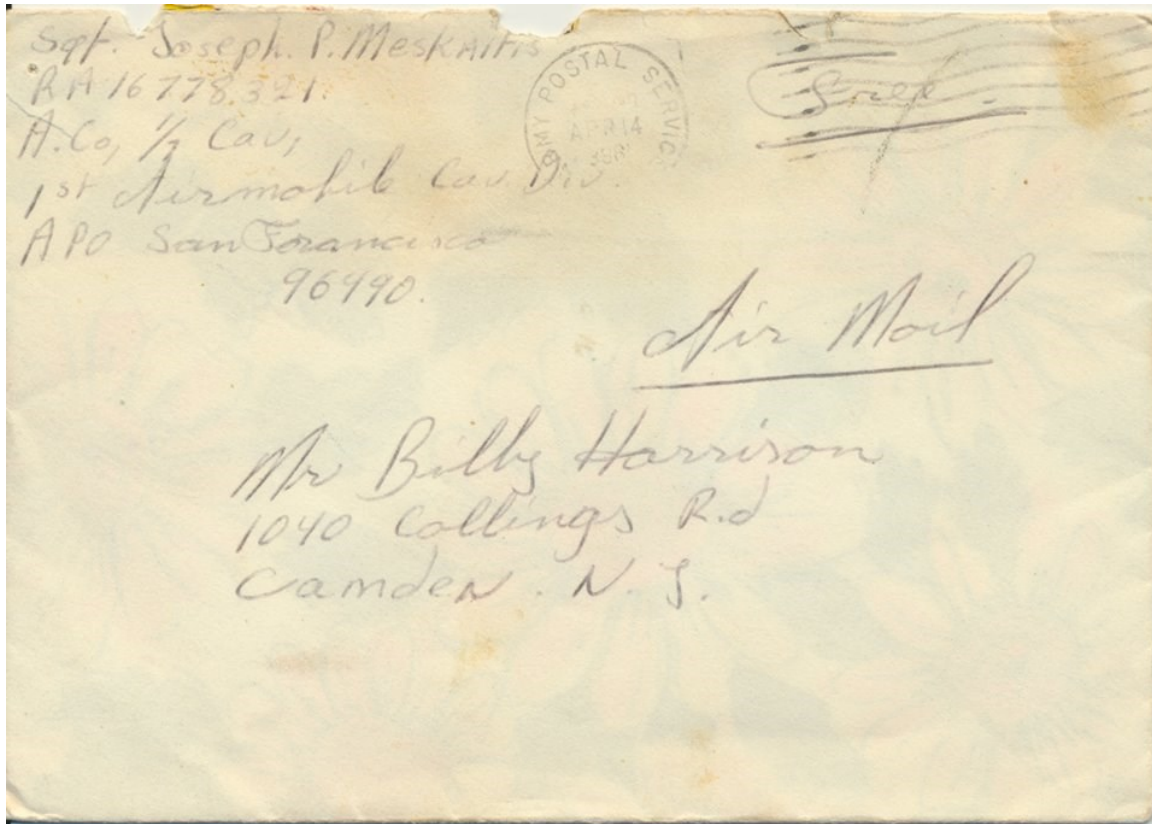 Sgt. Joseph. P. Meskaitis
RA 16 778 321.
A. Co, 1/7 Cav,
1st Airmobile Cav. Div.
APO San Francisco
96490.
ARMY POSTAL SERVICE
APR 14
Free
Air Mail
Mr Billy Harrison
1040 Collings R.d
Camden. N. J.